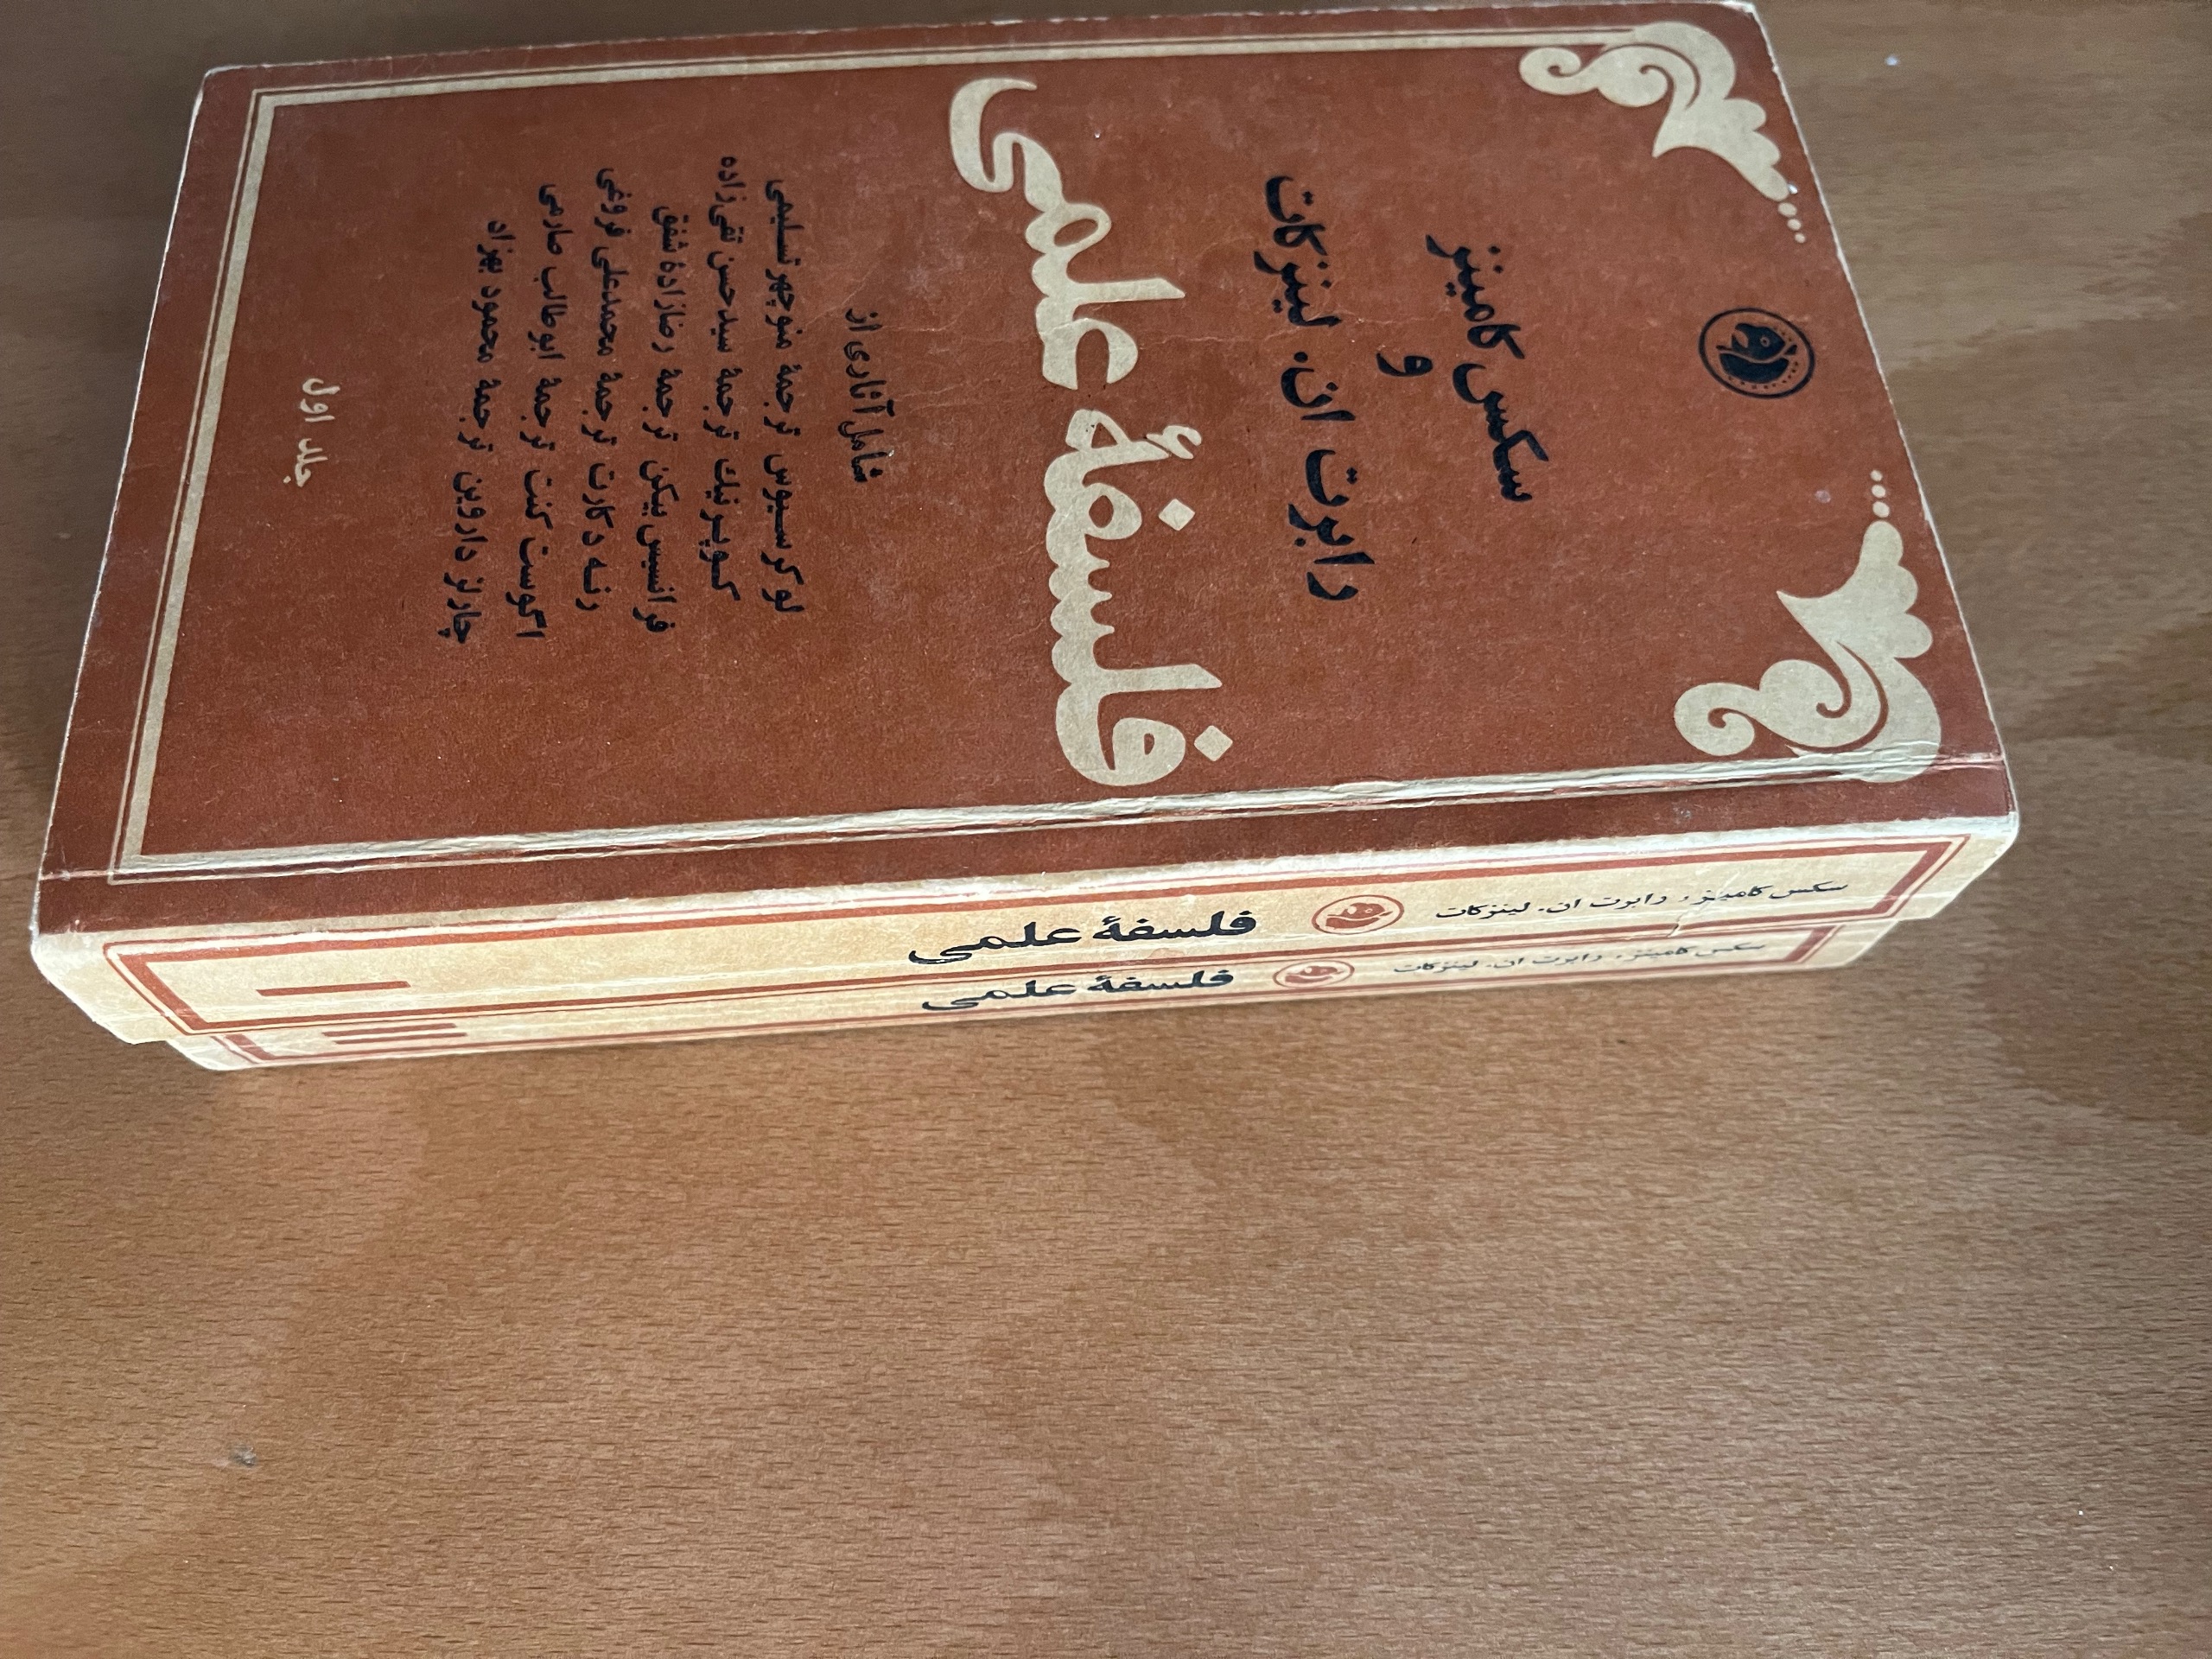 سکس کامینز
و
رابرت ان. لینزکات
فلسفهٔ علمی
شامل آثاری از
لوکرسیوس ترجمهٔ منوچهر تسلیمی
کوپرنیک ترجمهٔ سیدحسن تقی‌زاده
فرانسیس بیکن ترجمهٔ رضازادهٔ شفق
رنه دکارت ترجمهٔ محمدعلی فروغی
اگوست کنت ترجمهٔ ابوطالب صارمی
چارلز داروین ترجمهٔ محمود بهزاد
جلد اول
سکس کامینز، رابرت ان. لینزکات فلسفهٔ علمی
سکس کامینز، رابرت ان. لینزکات فلسفهٔ علمی